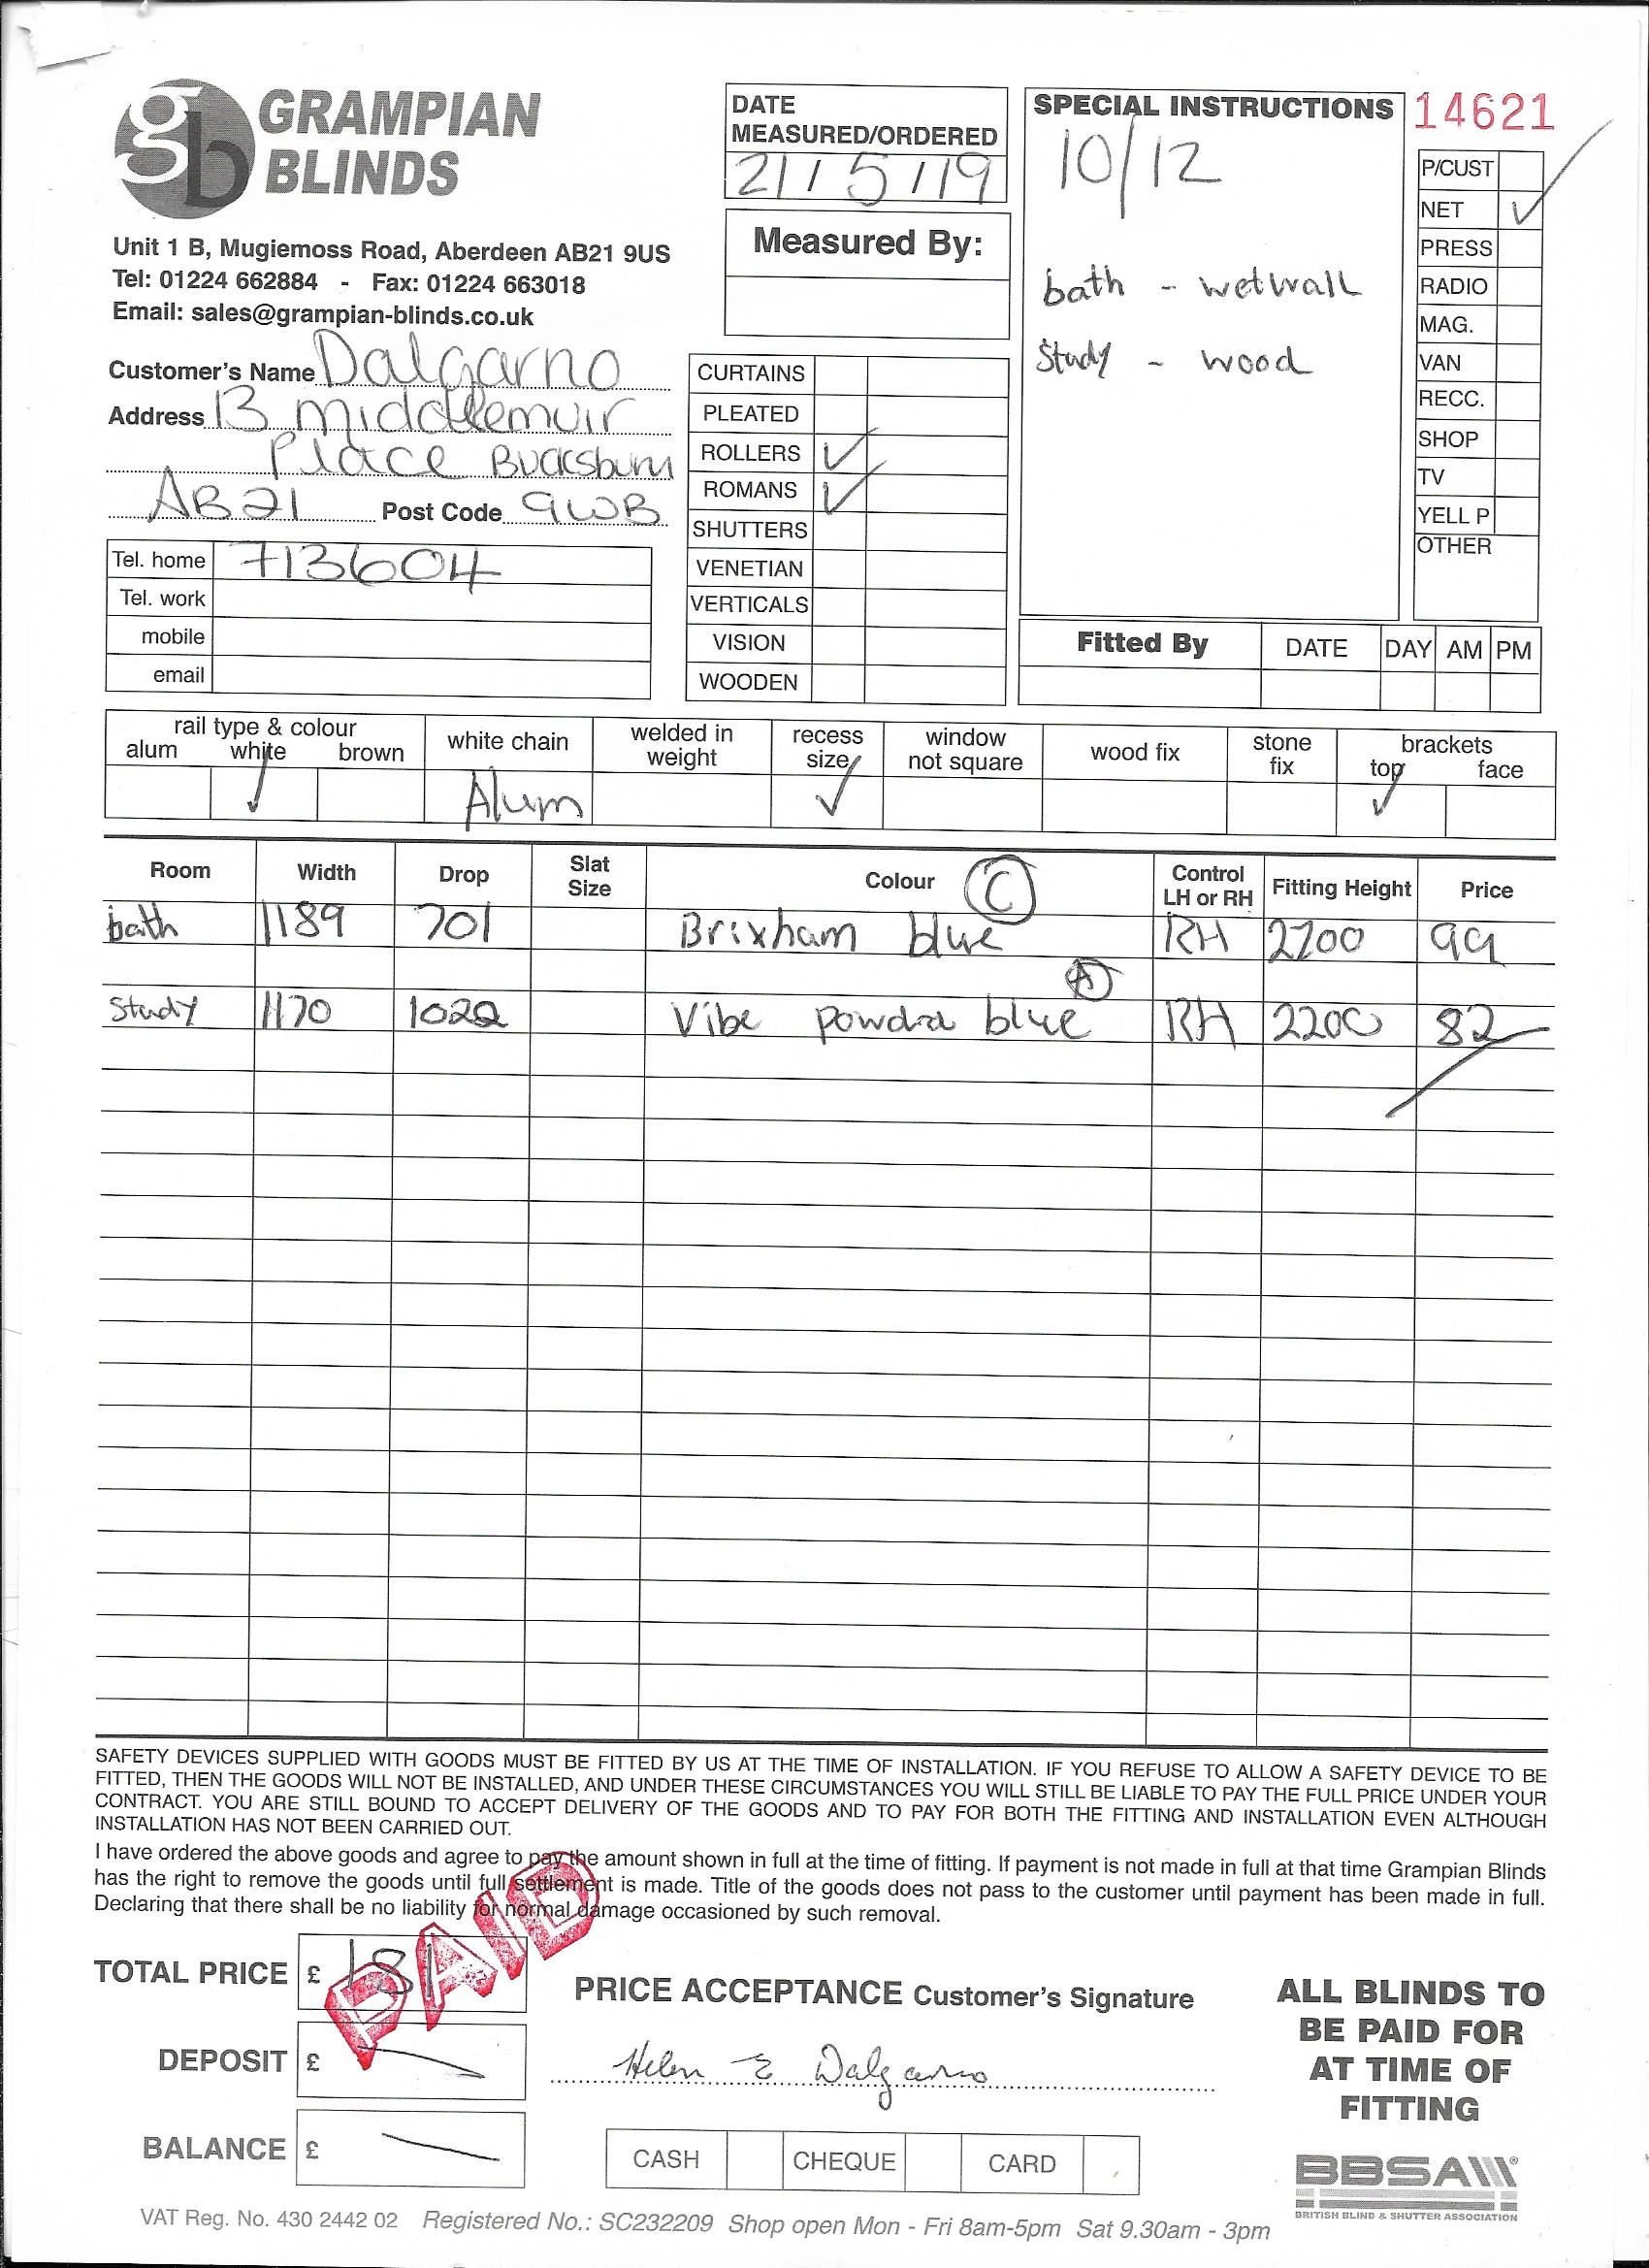 GRAMPIAN
BLINDS
Unit 1 B, Mugiemoss Road, Aberdeen AB21 9US
Tel: 01224 662884 - Fax: 01224 663018
Email: sales@grampian-blinds.co.uk
DATE
MEASURED/ORDERED
21/5/19
Measured By:
SPECIAL INSTRUCTIONS
10/12
bath - wetwall
Study - wood
14621
P/CUST
NET ✓
PRESS
RADIO
MAG.
VAN
RECC.
SHOP
TV
YELL P
OTHER
Customer's Name Dalgarno
Address 13 Middlemuir
Place Bucksburn
AB21 Post Code 9WB
Tel. home 713604
Tel. work
mobile
email
CURTAINS
PLEATED
ROLLERS ✓
ROMANS ✓
SHUTTERS
VENETIAN
VERTICALS
VISION
WOODEN
Fitted By DATE DAY AM PM
rail type & colour
alum white brown
white chain
welded in
weight
recess
size
window
not square
wood fix
stone
fix
brackets
top face
✓ Alum ✓ ✓
Room Width Drop Slat Size Colour C Control LH or RH Fitting Height Price
bath 1189 701 Brixham blue RH 2200 99
A
Study 1170 1022 Vibe powder blue RH 2200 82
SAFETY DEVICES SUPPLIED WITH GOODS MUST BE FITTED BY US AT THE TIME OF INSTALLATION. IF YOU REFUSE TO ALLOW A SAFETY DEVICE TO BE
FITTED, THEN THE GOODS WILL NOT BE INSTALLED, AND UNDER THESE CIRCUMSTANCES YOU WILL STILL BE LIABLE TO PAY THE FULL PRICE UNDER YOUR
CONTRACT. YOU ARE STILL BOUND TO ACCEPT DELIVERY OF THE GOODS AND TO PAY FOR BOTH THE FITTING AND INSTALLATION EVEN ALTHOUGH
INSTALLATION HAS NOT BEEN CARRIED OUT.
I have ordered the above goods and agree to pay the amount shown in full at the time of fitting. If payment is not made in full at that time Grampian Blinds
has the right to remove the goods until full settlement is made. Title of the goods does not pass to the customer until payment has been made in full.
Declaring that there shall be no liability for normal damage occasioned by such removal.
TOTAL PRICE £ 181
PAID
DEPOSIT £ —
BALANCE £ —
PRICE ACCEPTANCE Customer's Signature
Helen E Dalgarno
CASH CHEQUE CARD
ALL BLINDS TO
BE PAID FOR
AT TIME OF
FITTING
BBSA
BRITISH BLIND & SHUTTER ASSOCIATION
VAT Reg. No. 430 2442 02 Registered No.: SC232209 Shop open Mon - Fri 8am-5pm Sat 9.30am - 3pm